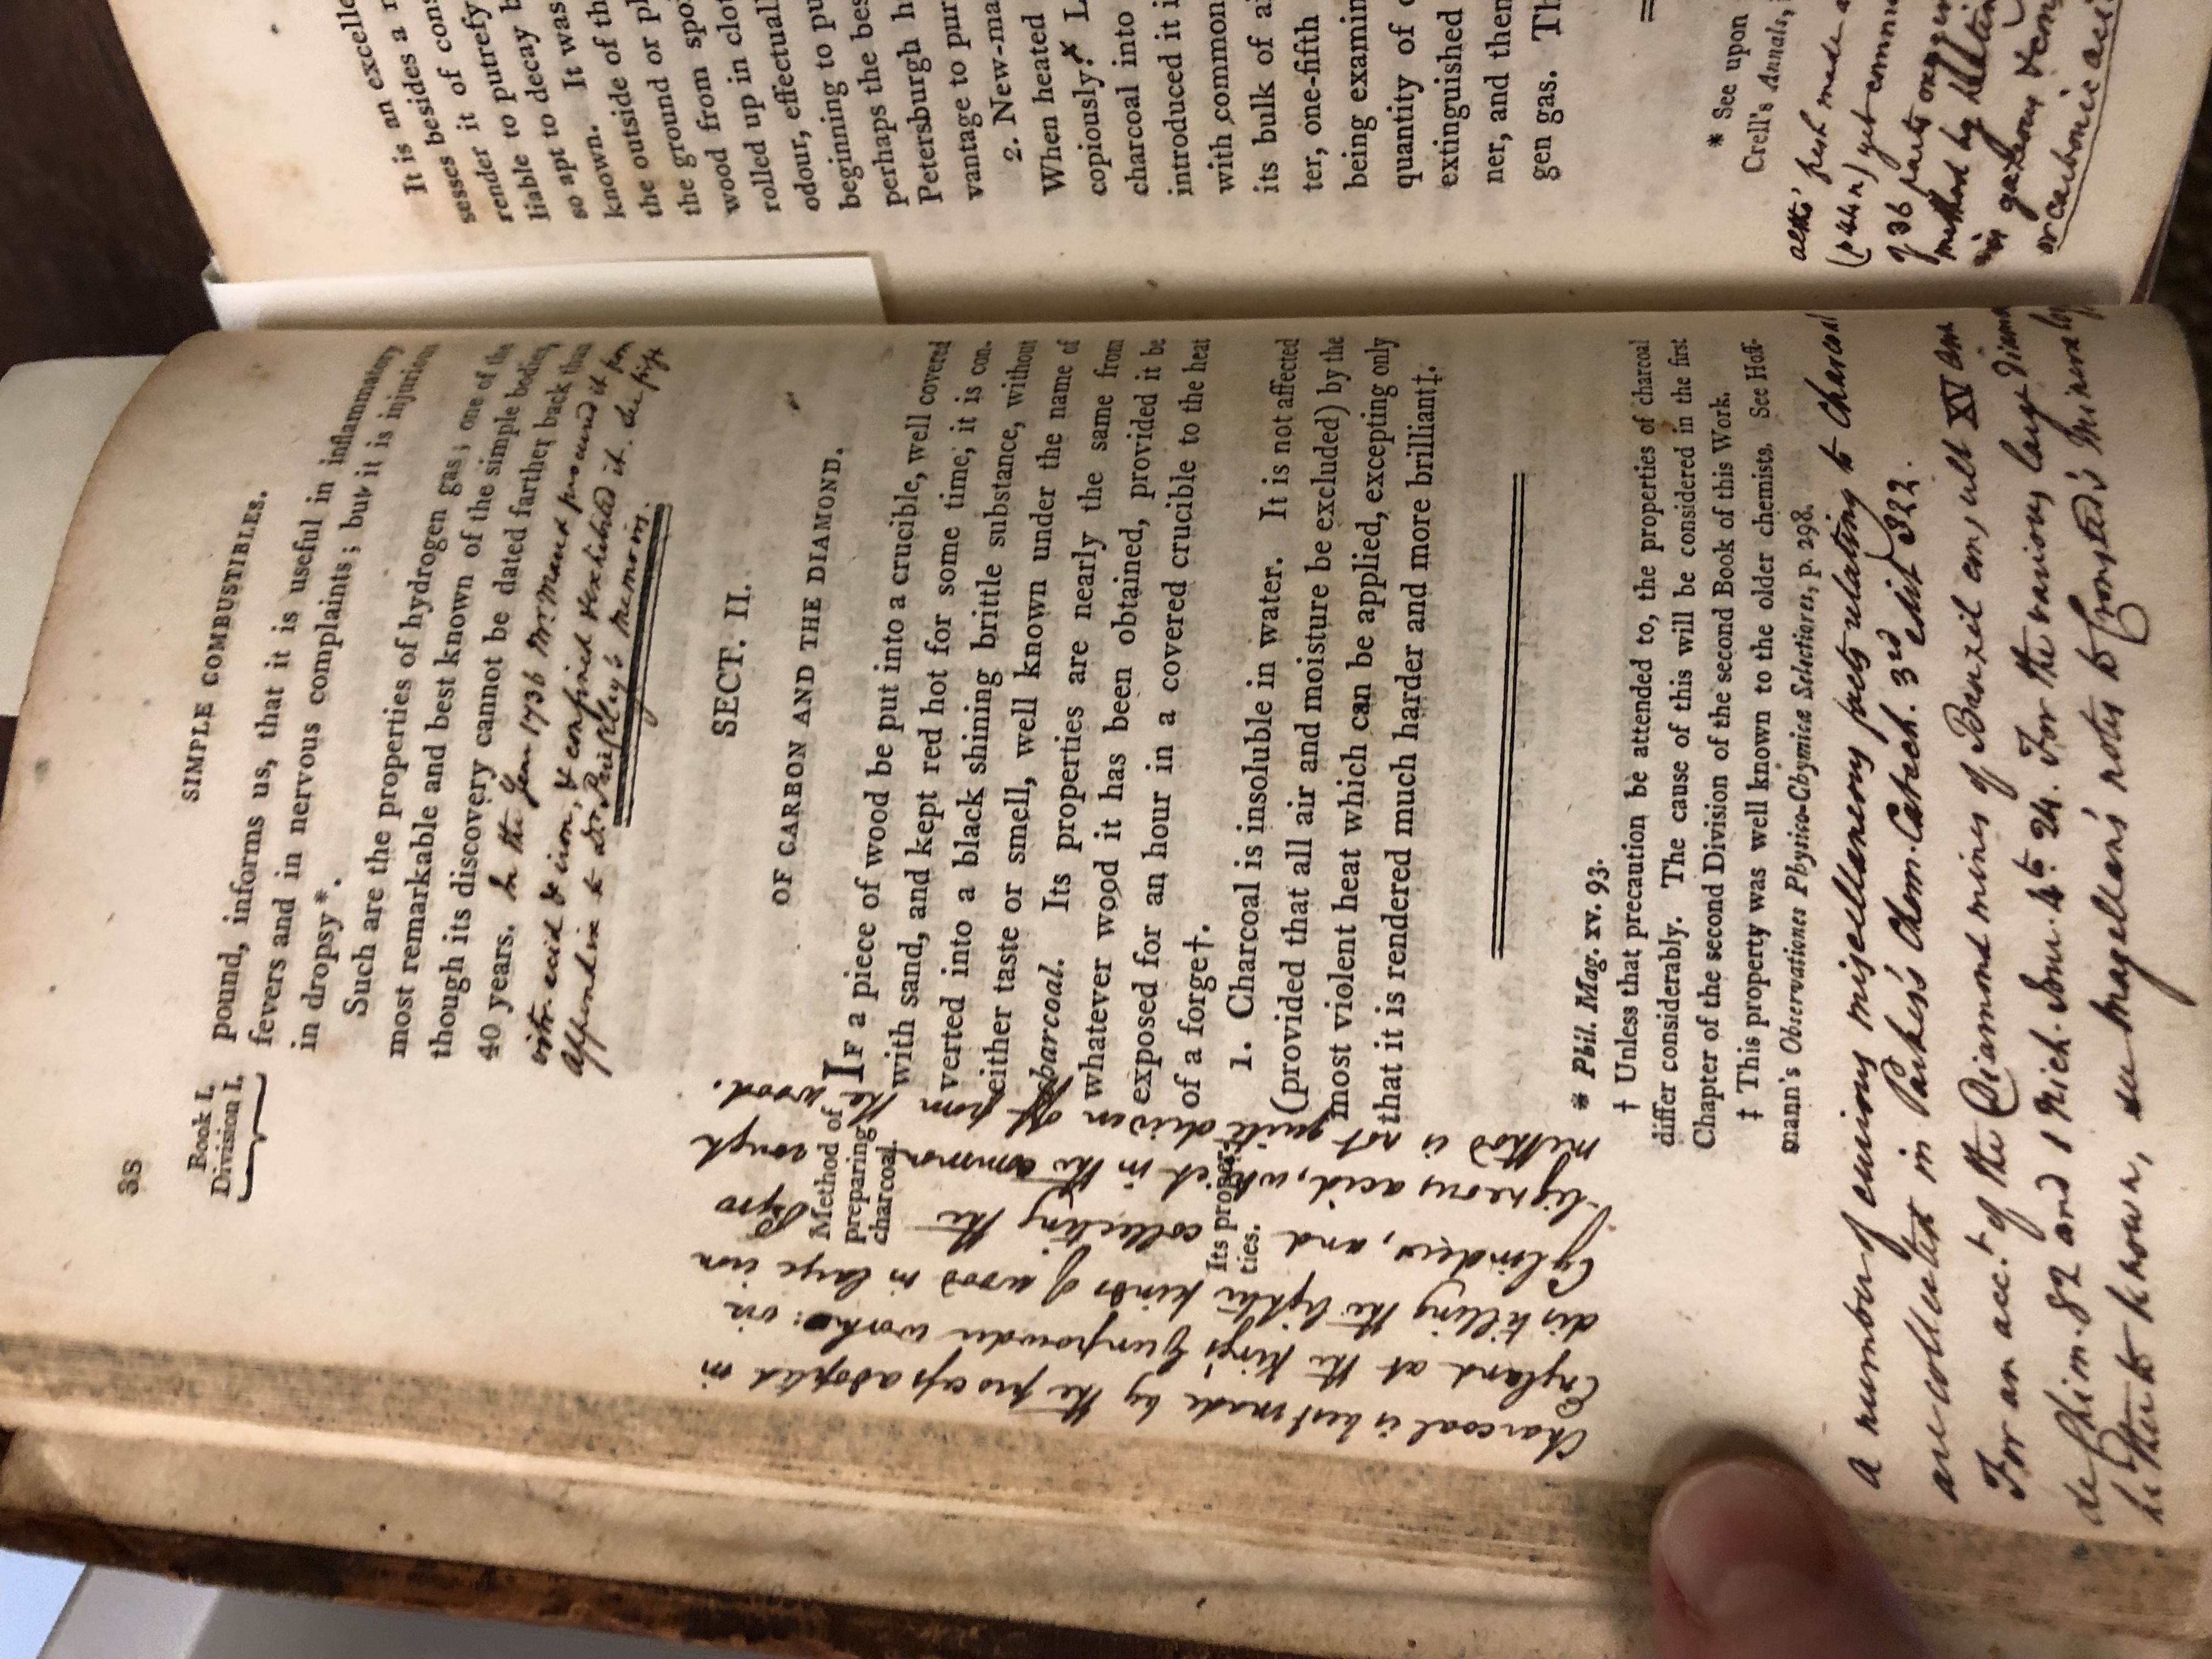 38
SIMPLE COMBUSTIBLES.
Book I.
Division I.
pound, informs us, that it is useful in inflammatory
fevers and in nervous complaints; but it is injurious
in dropsy*.
Such are the properties of hydrogen gas; one of the
most remarkable and best known of the simple bodies,
though its discovery cannot be dated farther back than
40 years. In the year 1736 Mr. Maud procured it from
vitr. acid & iron, & confined & exhibited it. See first
Appendix to Dr Priestley's Memoirs.
SECT. II.
OF CARBON AND THE DIAMOND.
Method of
preparing
charcoal.
IF a piece of wood be put into a crucible, well covered
with sand, and kept red hot for some time, it is con-
verted into a black shining brittle substance, without
either taste or smell, well known under the name of
charcoal. Its properties are nearly the same from
whatever wood it has been obtained, provided it be
exposed for an hour in a covered crucible to the heat
of a forge†.
Its proper-
ties.
1. Charcoal is insoluble in water. It is not affected
(provided that all air and moisture be excluded) by the
most violent heat which can be applied, excepting only
that it is rendered much harder and more brilliant‡.
* Phil. Mag. xv. 93.
† Unless that precaution be attended to, the properties of charcoal
differ considerably. The cause of this will be considered in the first
Chapter of the second Division of the second Book of this Work.
‡ This property was well known to the older chemists. See Hoff-
mann's Observationes Physico-Chymicæ Selectiores, p. 298.
Charcoal is best made by the process adopted in
England at the King's Gunpowder works: viz
distilling the lighter kinds of wood in large iron
Cylinders, and collecting the Pyro
-ligneous acid, which in the common rough
method is not quite driven off from the wood.
A number of curious miscellaneous facts relating to Charcoal
are collected in Parkes's Chem. Catech. 3rd edit 322.
For an acct. of the Diamond mines of Brazil consult XV Ann
de Chim. 82 and 1 Nich. Jour. 4to. 24. For the various large Diam
hitherto known, see Magellan's notes to Cronsted's Mineralogy
It is an excelle
It besides a
sesses besides of cons
render it putrefy
liable to decay b
so apt to It was
known. of th
the outside or pl
the ground spo
wood from clot
rolled up in
odour, effectuall
beginning to pu
perhaps the bes
Petersburgh h
vantage to pur
2. New-ma
When heated
copiously. L
charcoal into
introduced it i
with common
its bulk of ai
ter, one-fifth
being examin
quantity of
extinguished
ner, and then
gen gas. Th
* See upon
Crell's Annals,
fresh made
(p 44 n) yet
of 36 parts oxygen
method by
in gaseous
or carbonic acid